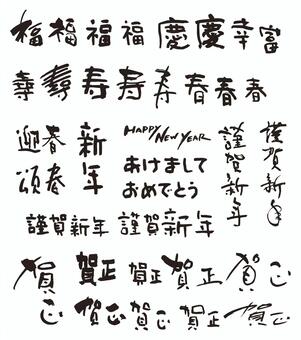 福 福 福 福 慶 慶 幸 富
寿 寿 寿 寿 寿 春 春 春
迎春
頌春
新年
HAPPY NEW YEAR
あけまして
おめでとう
謹賀新年
謹賀新年
謹賀新年 謹賀新年
賀正 賀正 賀正 賀正 賀正
賀正 賀正 賀正 賀正